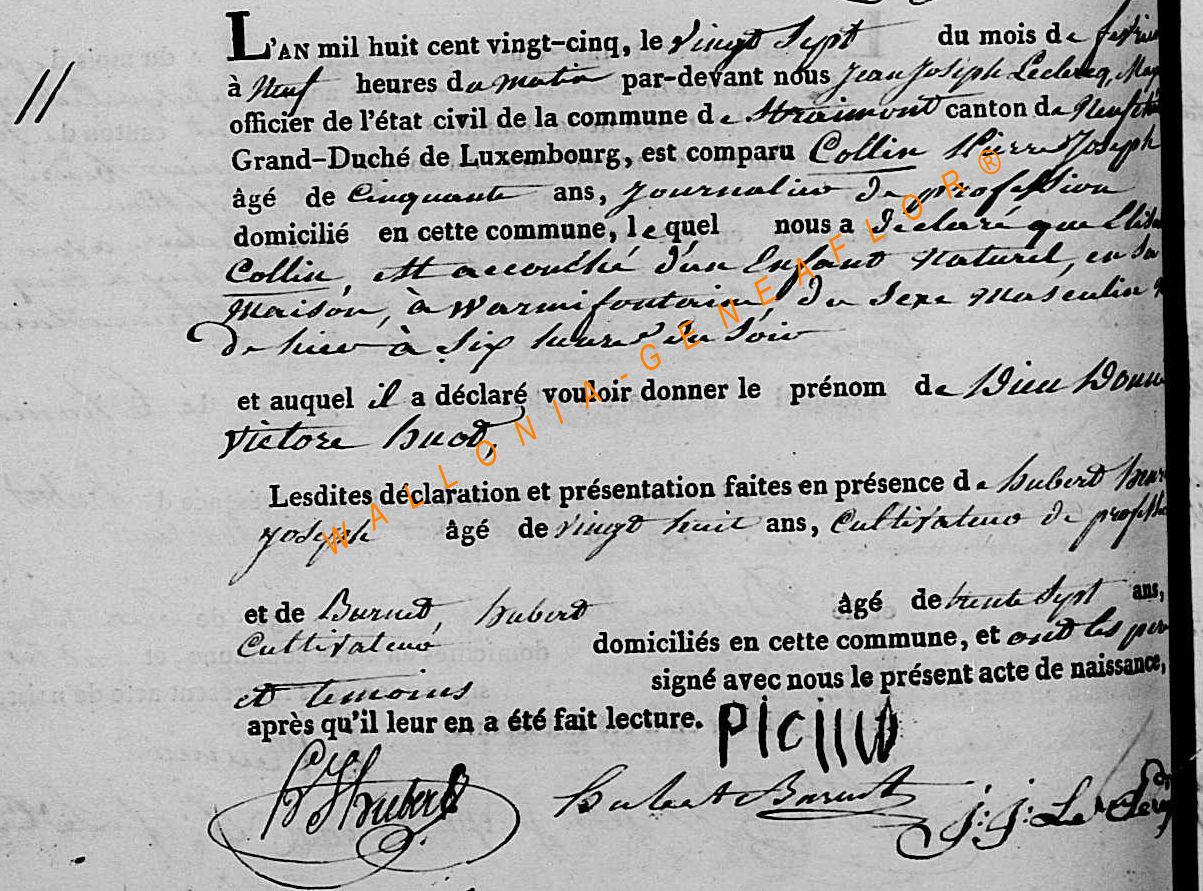 11
L'AN mil huit cent vingt-cinq, le vingt Sept du mois de
à Neuf heures du matin par-devant nous Jean Joseph Leclercq,
officier de l'état civil de la commune de Straimont canton de
Grand-Duché de Luxembourg, est comparu Collin Pierre Joseph
âgé de Cinquante ans, Journalier de profession
domicilié en cette commune, lequel nous a déclaré que
Collin, est accouché d'un Enfant Naturel, en sa
Maison, à Warmifontaine, du Sexe Masculin
De hier à Six heures du Soir
et auquel il a déclaré vouloir donner le prénom de Dieu
Victore huot,
Lesdites déclaration et présentation faites en présence de hubert
Joseph âgé de vingt huit ans, Cultivateur de
et de Burnet, hubert âgé de trente Sept ans,
Cultivateur domiciliés en cette commune, et ont les
et temoins signé avec nous le présent acte de naissance,
après qu'il leur en a été fait lecture.
hubert Burnet
WALLONIA-GENEAFLOR®